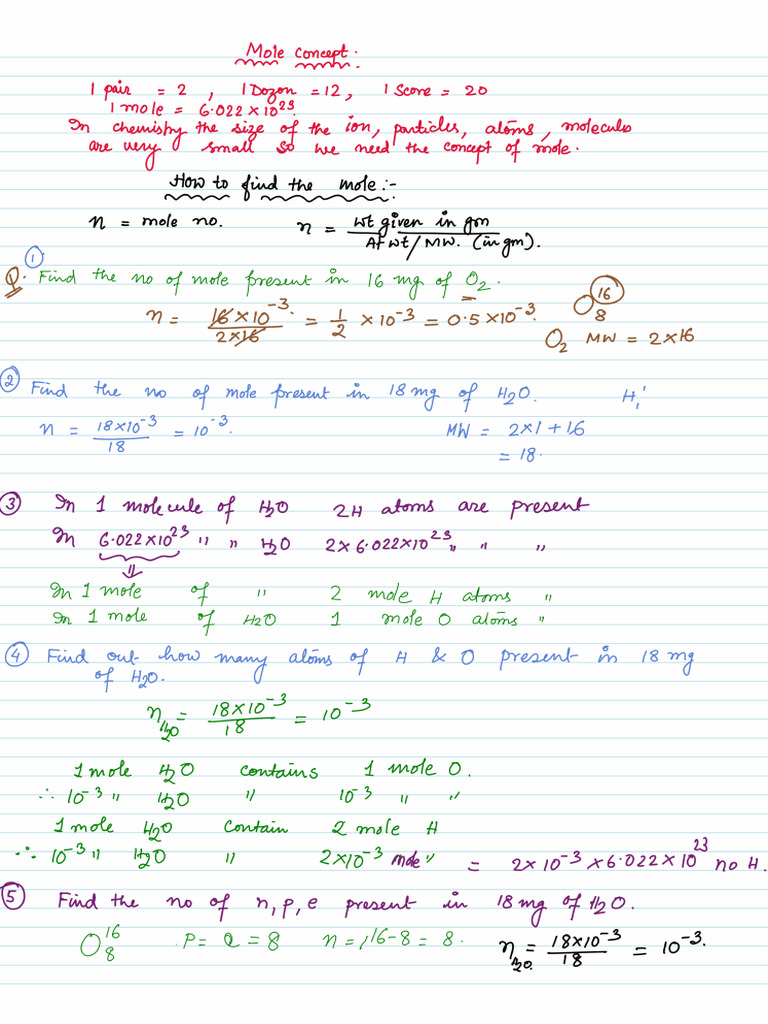 Mole Concept.
1 pair = 2, 1 Dozon = 12, 1 Score = 20
1 mole = 6.022 × 10²³
In chemistry the size of the ion, particles, atoms, molecules
are very small so we need the concept of mole.
How to find the mole:-
n = mole no. n = wt given in gm / At wt/MW. (in gm).
①
Q. Find the no of mole present in 16 mg of O₂.
n = 16 × 10⁻³ / 2 × 16 = 1/2 × 10⁻³ = 0.5 × 10⁻³. O₈¹⁶
O₂ MW = 2 × 16
② Find the no of mole present in 18 mg of H₂O. H₁¹
n = 18 × 10⁻³ / 18 = 10⁻³. MW = 2 × 1 + 16
= 18.
③ In 1 molecule of H₂O 2H atoms are present
In 6.022 × 10²³ " " H₂O 2 × 6.022 × 10²³ " " "
⇓
In 1 mole of " 2 mole H atoms "
In 1 mole of H₂O 1 mole O atoms "
④ Find out how many atoms of H & O present in 18 mg
of H₂O.
n H₂O = 18 × 10⁻³ / 18 = 10⁻³
1 mole H₂O contains 1 mole O.
∴ 10⁻³ " H₂O " 10⁻³ " "
1 mole H₂O contain 2 mole H
∴ 10⁻³ " H₂O " 2 × 10⁻³ mole " = 2 × 10⁻³ × 6.022 × 10²³ no H.
⑤ Find the no of n, p, e present in 18 mg of H₂O.
O₈¹⁶ P = e = 8 n = 16 - 8 = 8. n H₂O = 18 × 10⁻³ / 18 = 10⁻³.